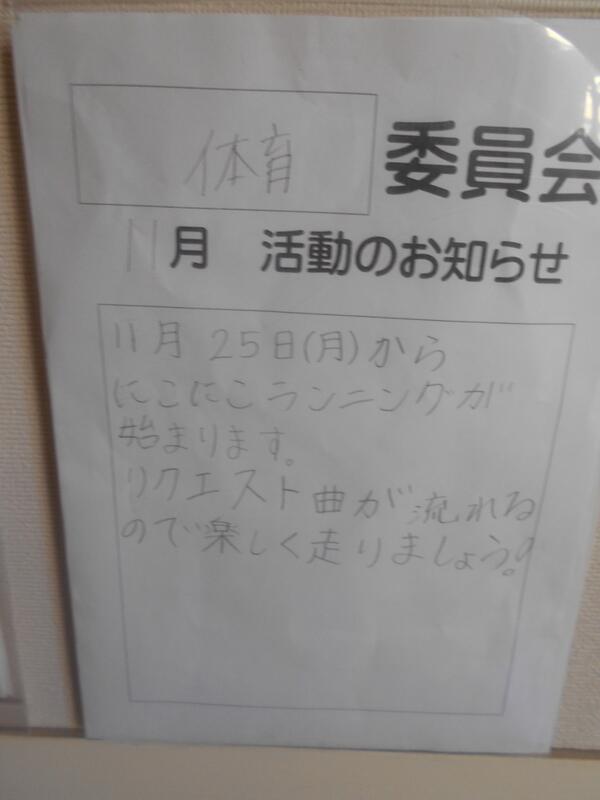 体育 委員会
11月 活動のお知らせ
11月25日(月)から
にこにこランニングが
始まります。
リクエスト曲が流れる
ので楽しく走りましょう。!